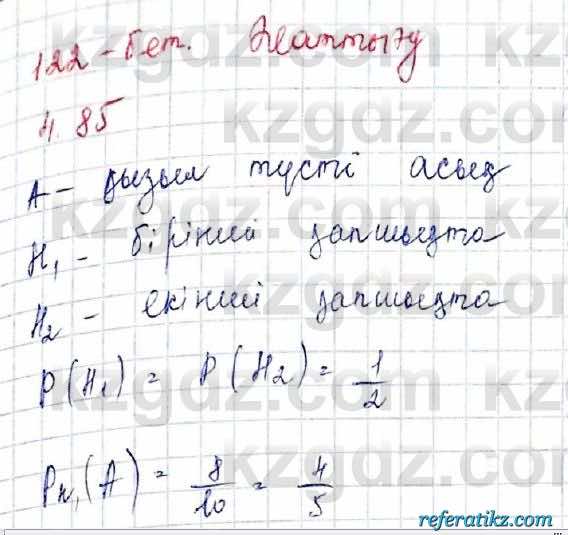 122-бет. Жаттығу
4.85
A - қызыл түсті асық
H₁ - бірінші қапшықта
H₂ - екінші қапшықта
P(H₁) = P(H₂) = 1/2
P_H₁(A) = 8/10 = 4/5
kzgdz.com
referatikz.com